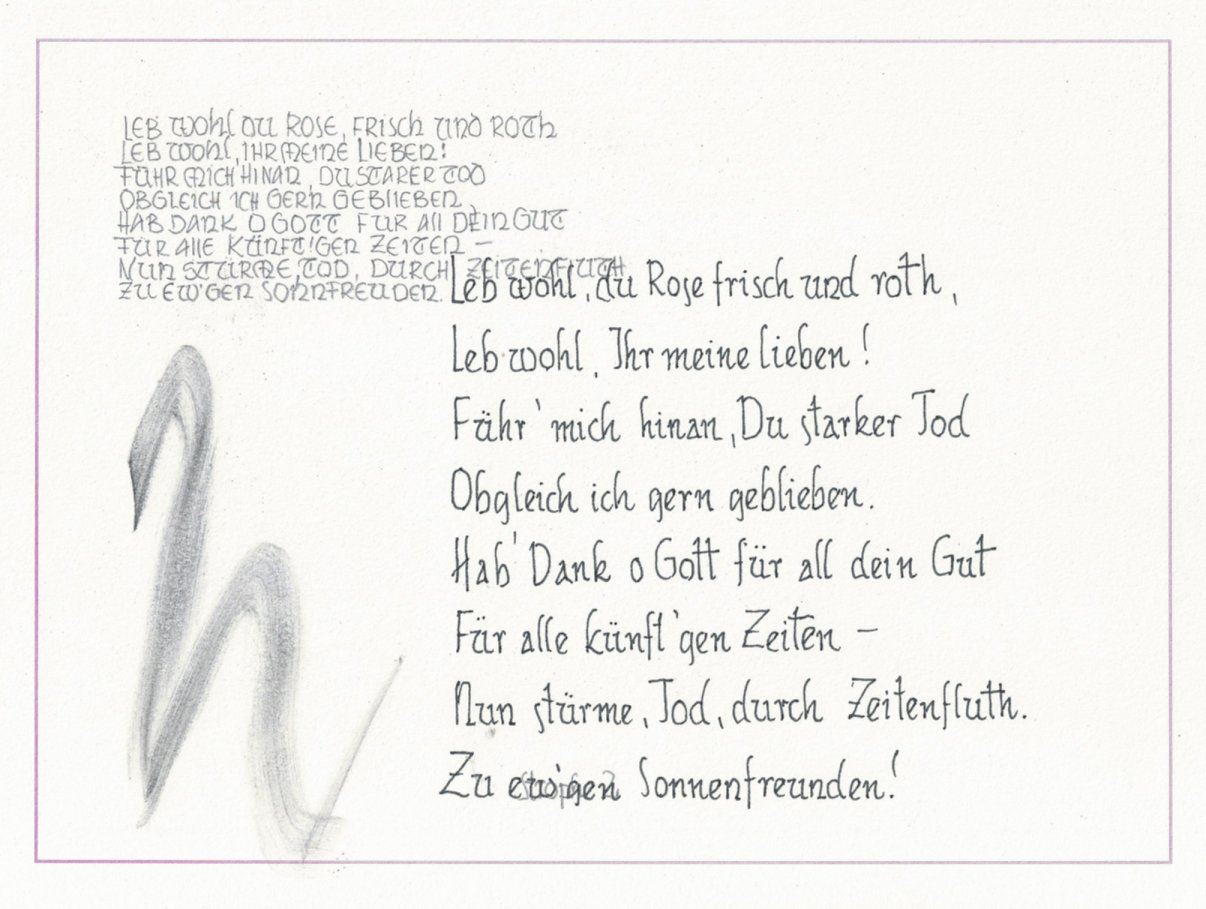 LEB WOHL DU ROSE, FRISCH UND ROTH
LEB WOHL, IHR MEINE LIEBEN!
FÜHR MICH HINAN, DU STARER TOD
OBGLEICH ICH GERN GEBLIEBEN,
HAB DANK O GOTT FÜR All DEIN GUT
FÜR AllE KÜNFT'GEN ZEITEN –
NUN STÜRME, TOD, DURCH ZEITENFLUTH
ZU EW'GEN SONNFREUDEN.
Leb wohl, du Rose frisch und roth,
Leb wohl, Ihr meine lieben!
Führ' mich hinan, Du starker Tod
Obgleich ich gern geblieben.
Hab' Dank o Gott für all dein Gut
Für alle künft'gen Zeiten –
Nun stürme, Tod, durch Zeitenfluth.
Zu ew'gen Sonnenfreunden!